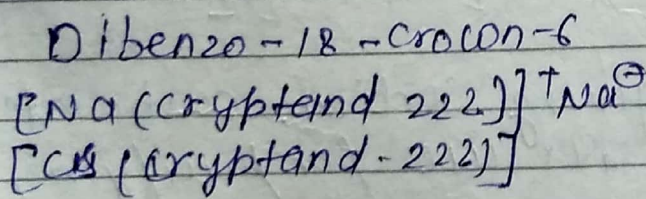 Dibenzo-18-Crocon-6
[Na(Cryptand 222)]⁺Na⊖
[Cs(Cryptand-222)]